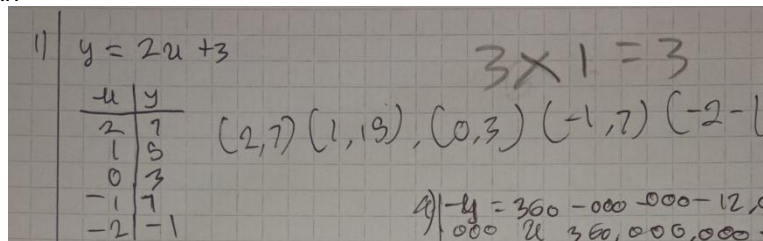 1) y = 2x + 3
3 × 1 = 3
x | y
2 | 7
1 | 5
0 | 3
-1 | 1
-2 | -1
(2,7) (1,15), (0,3) (-1,7) (-2-1
a) -y = 360 -000 -000 - 12,0
000 x 360,000,000